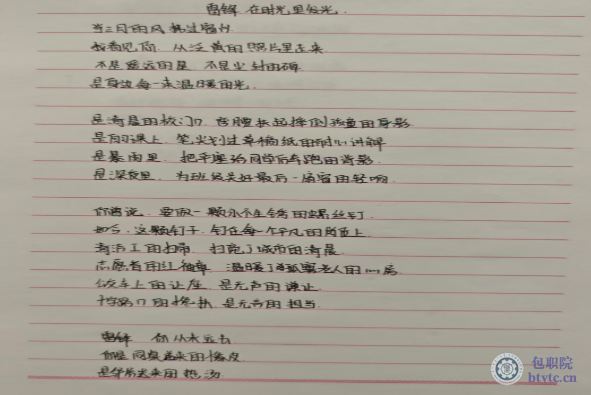 雷锋 在时光里发光
当三月的风 拂过窗沿
我看见你 从泛黄的照片里走来
不是遥远的星 不是尘封的碑
是身边每一束温暖的光
是清晨的校门口 弯腰扶起摔倒孩童的身影
是自习课上 笔尖划过草稿纸的耐心讲解
是暴雨里 把伞塞给同学后奔跑的背影
是深夜里 为班级关好最后一扇窗的轻响
你曾说 要做一颗永不生锈的螺丝钉
如今 这颗钉子 钉在每一个平凡的角色上
清洁工的扫帚 扫亮了城市的清晨
志愿者的红袖章 温暖了孤寡老人的心房
公交车上的让座 是无声的谦让
的 是无声的担当
雷锋 你从未远去
你是同桌递来的橡皮
是邻居送来的热汤
包职院
btvtc.cn